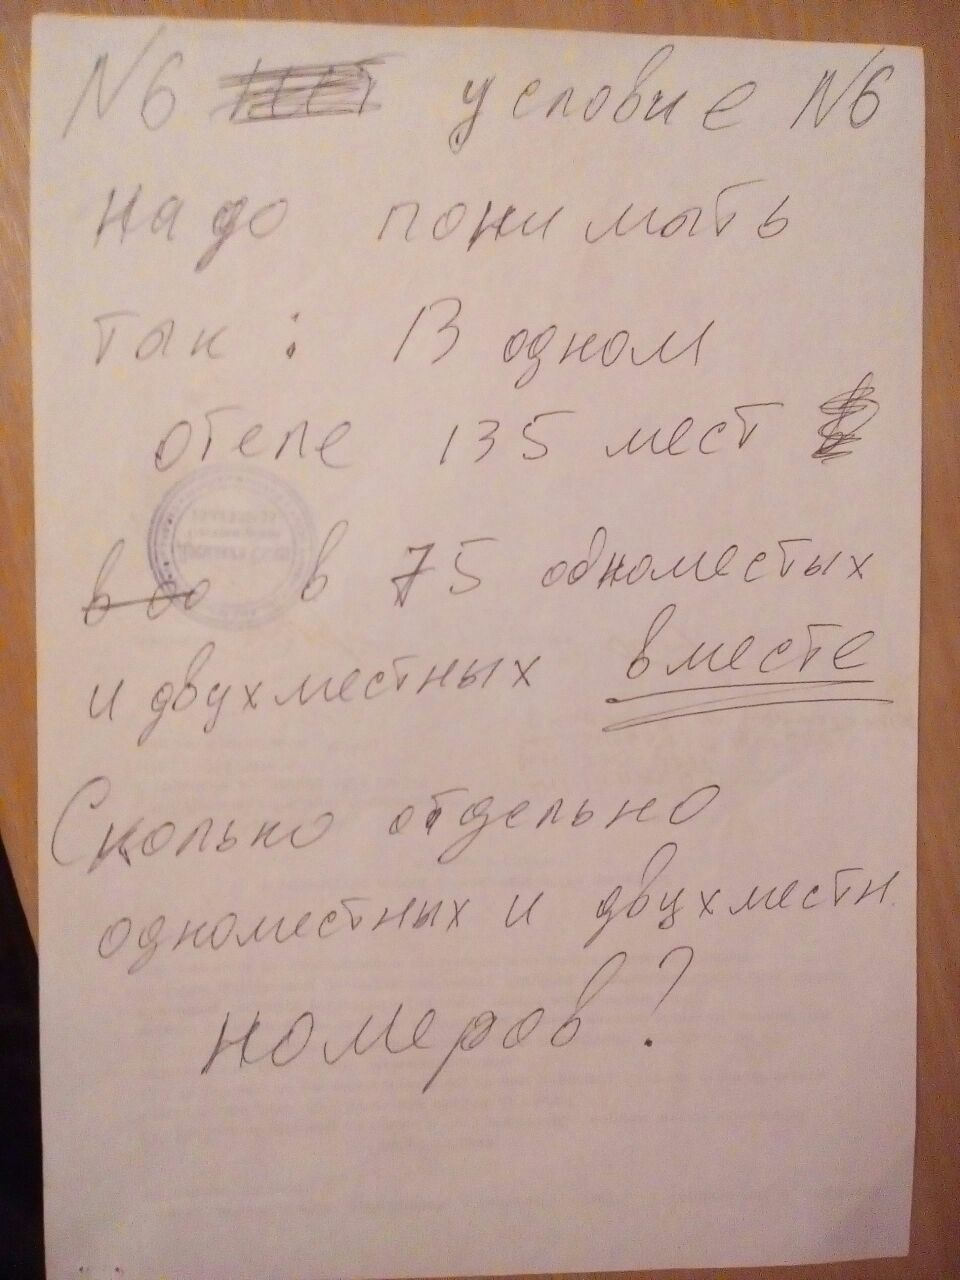 N6 условие N6
надо понимать
так: В одном
отеле 135 мест
в 75 одноместых
и двухместных вместе
Сколько отдельно
одноместных и двухместн.
номеров?